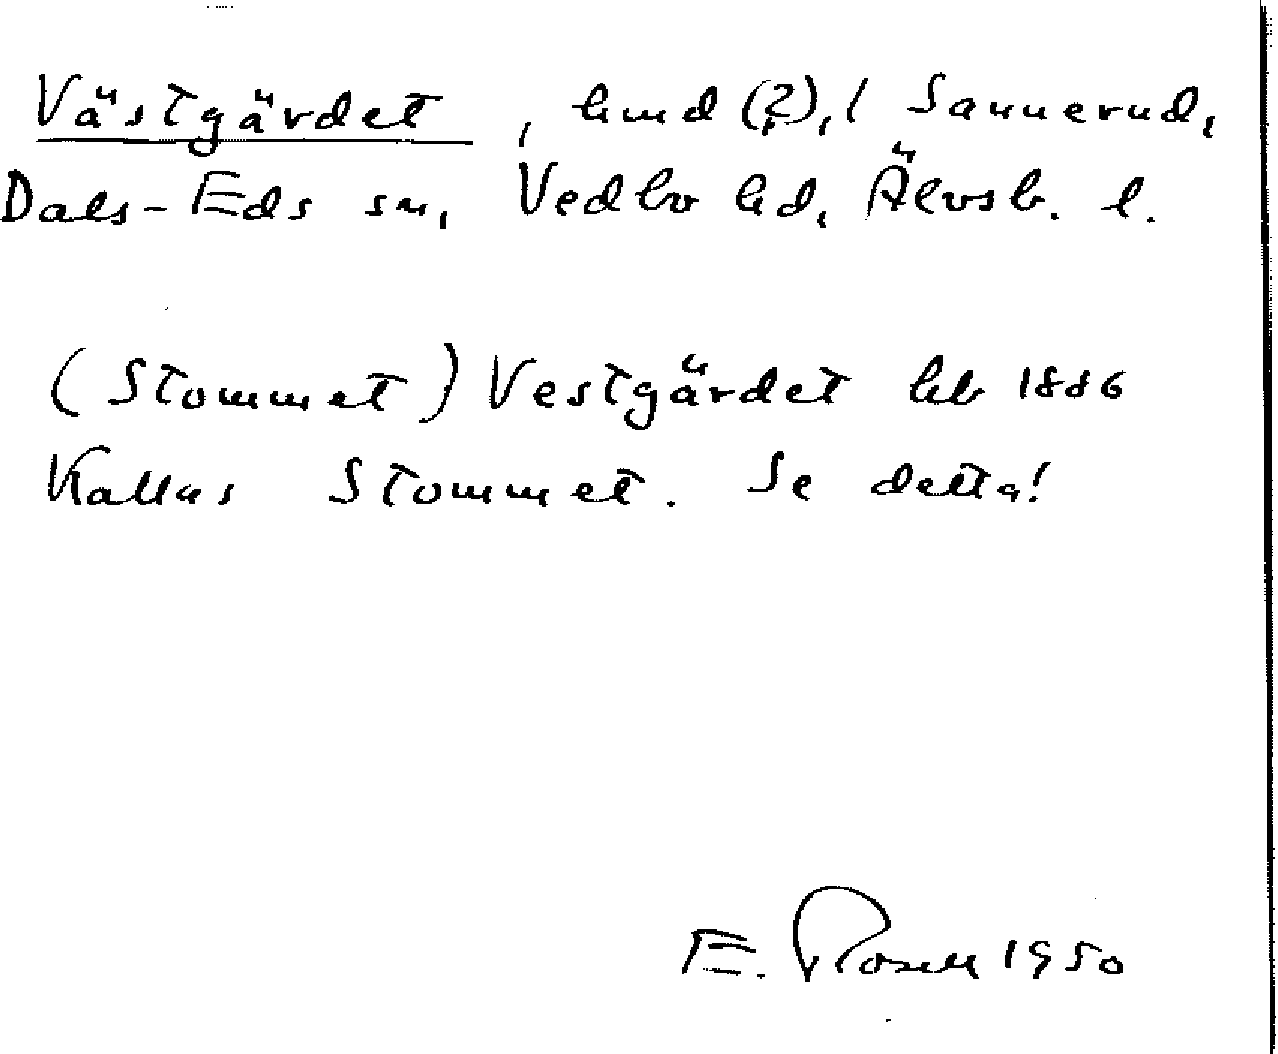 Västgärdet, hmd (?), / Sannerud,
Dals-Eds sn, Vedbo hd, Älvsb. l.
(Stommet) Vestgärdet hb 1886
Kallas Stommet. Se detta!
E. Rosell 1950